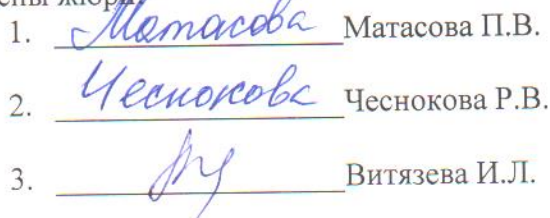 ены жюри:
1. Матасова Матасова П.В.
2. Чеснокова Чеснокова Р.В.
3. Витязева И.Л.